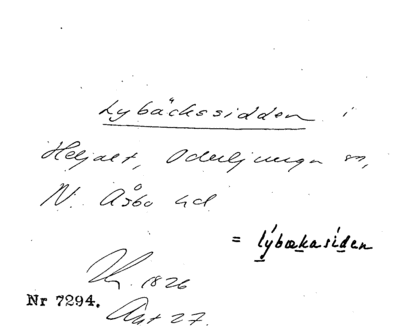 Lybäckssidden i
Heljalt, Oderljunga sn,
N. Åsbo hd.
= lýbækasíden
1826
Nr 7294.
Akt 27.